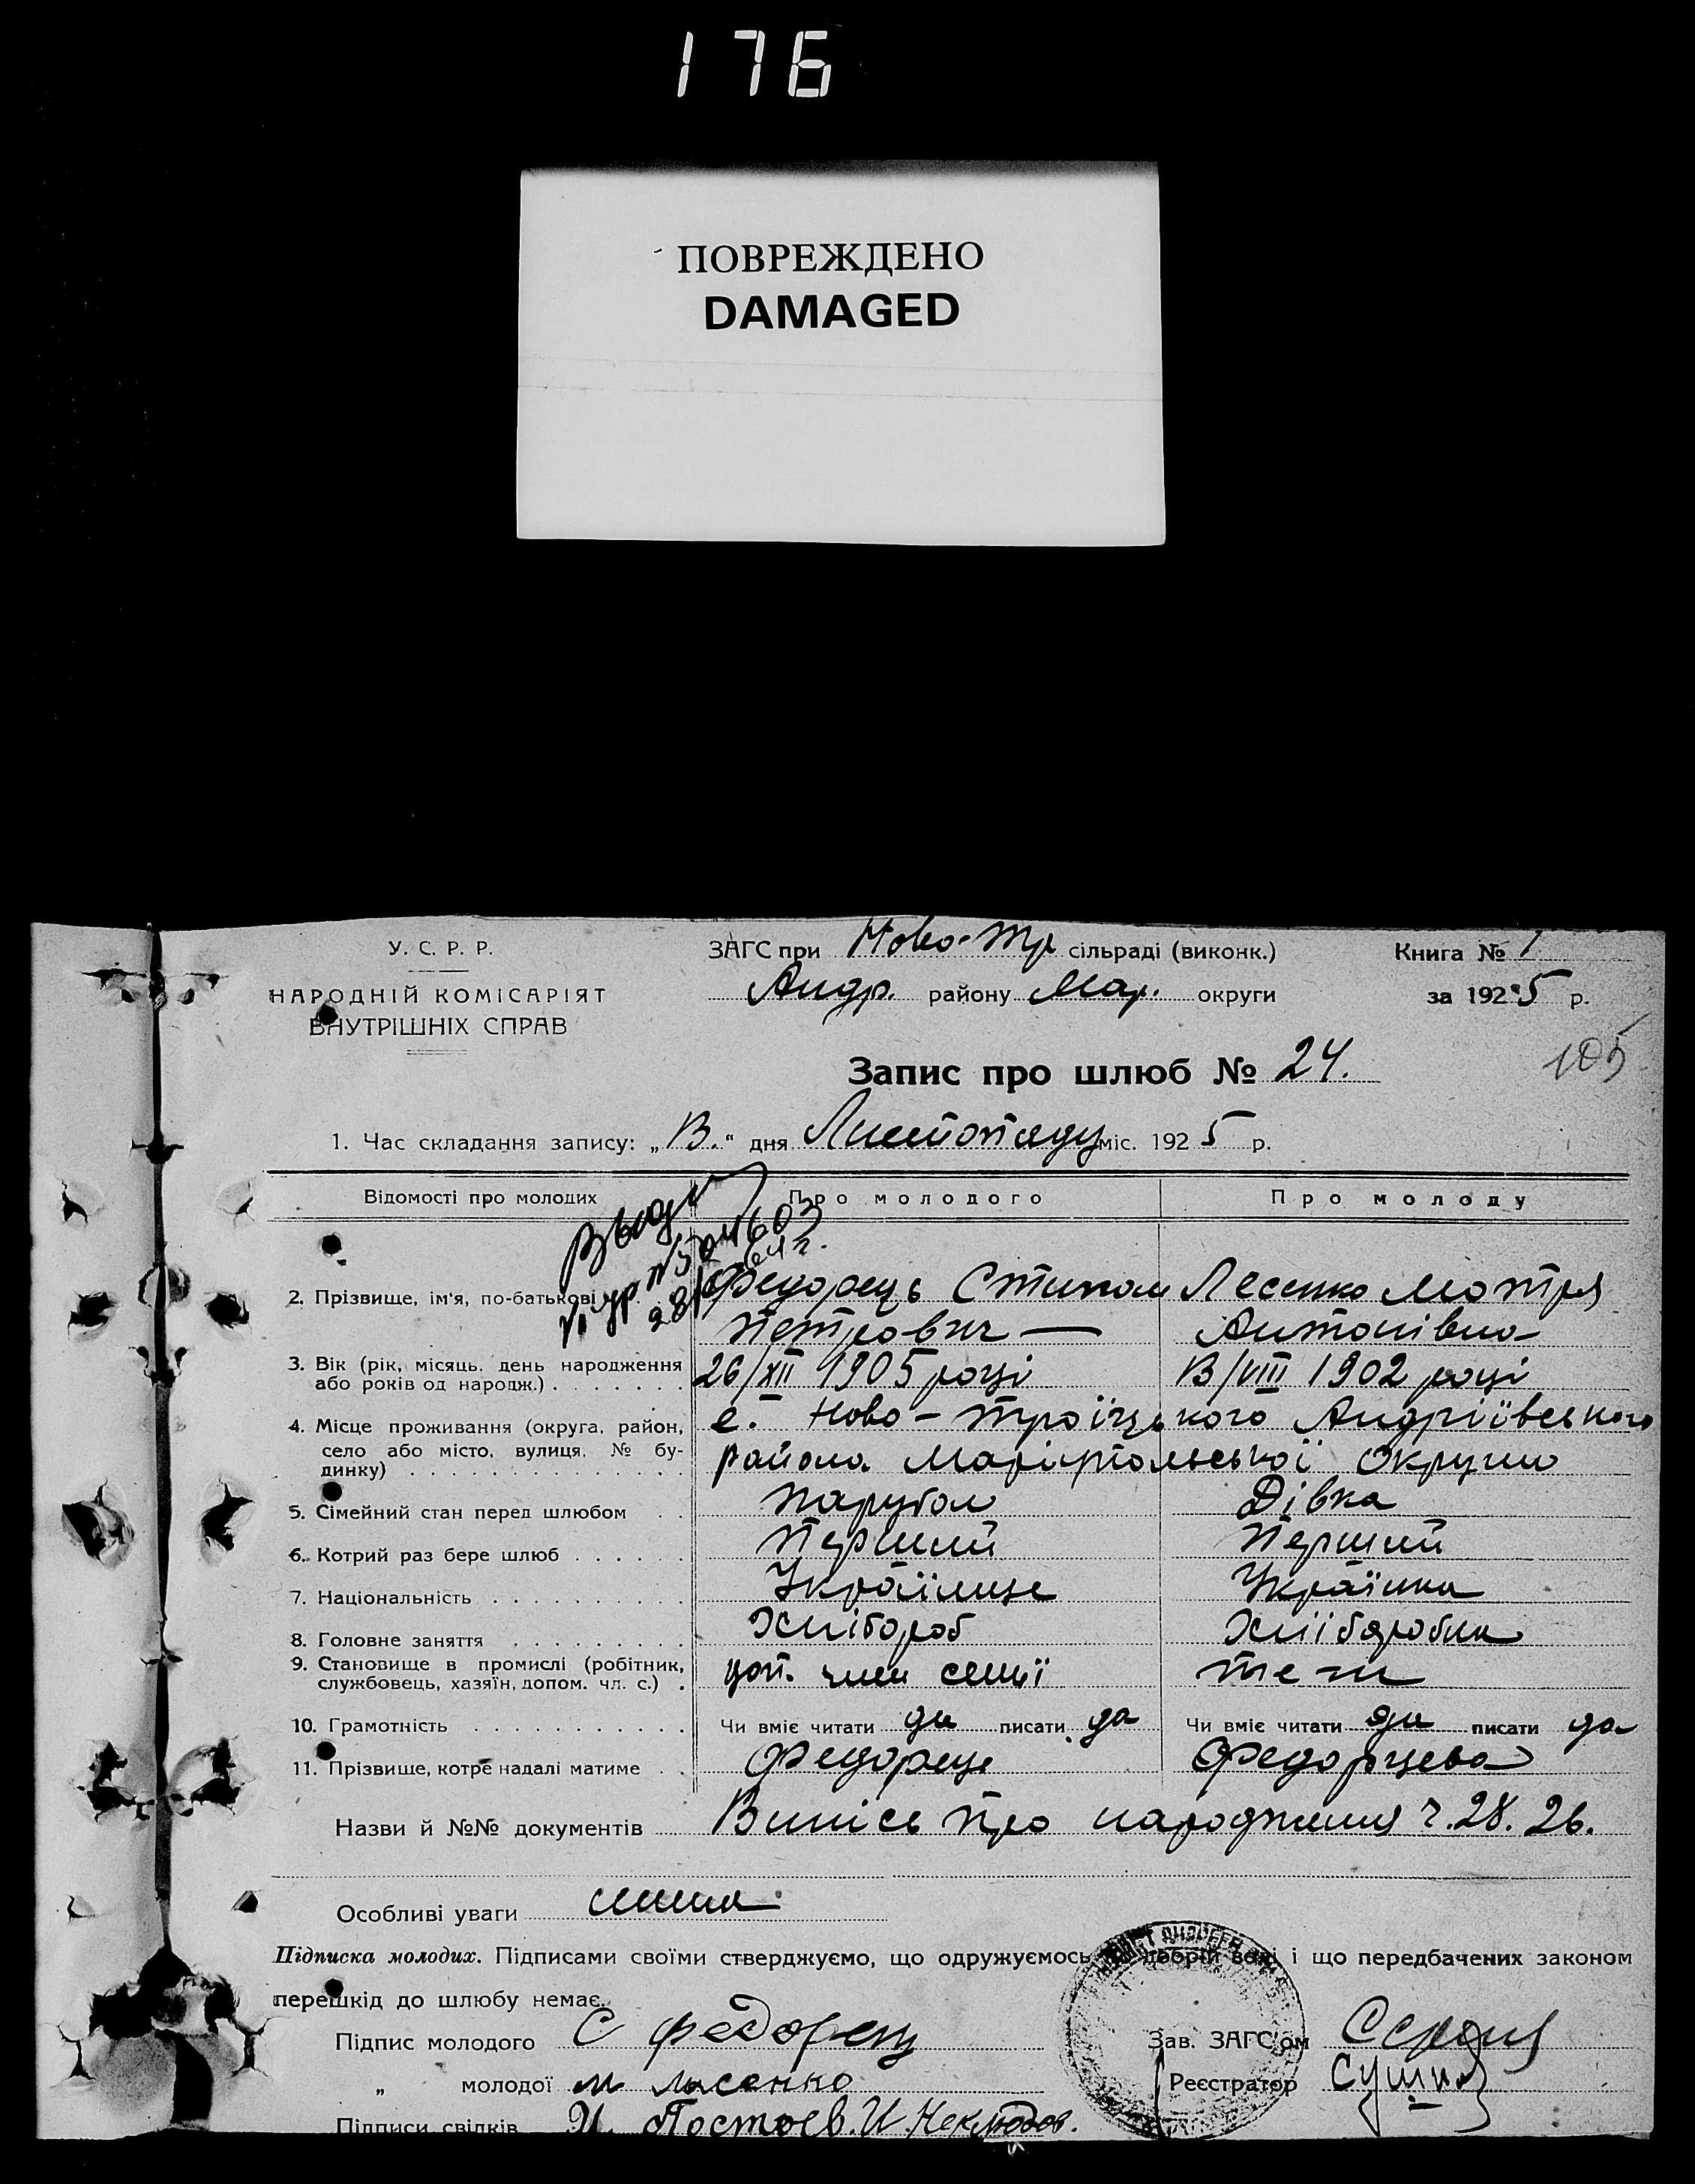 176
ПОВРЕЖДЕНО
DAMAGED
У. С. Р. Р.
НАРОДНІЙ КОМІСАРІЯТ
ВНУТРІШНІХ СПРАВ
ЗАГС при Ново-Тр сільраді (виконк.)
Андр. району Мар. округи
Книга № 1
за 1925 р.
105
Запис про шлюб № 24.
1. Час складання запису: „ В. “ дня Листопаду міс. 1925 р.
Відомості про молодих
Про молодого
Про молоду
28/ 64 г.
2. Прізвище, ім'я, по-батькові
Федорець Стипан
Петрович —
Лесенко Мотря
Антонівна
3. Вік (рік, місяць, день народження
або років од народж.)
26/XII 1905 році
В/VIII 1902 році
4. Місце проживання (округа, район,
село або місто, вулиця, № бу-
динку)
с. Ново-Троїцького Андріївського
района Маріупольської Округи
5. Сімейний стан перед шлюбом
парубок
Дівка
6. Котрий раз бере шлюб
Перший
Перший
7. Національність
Українце
Українка
8. Головне заняття
Хлібороб
Хліборобка
9. Становище в промислі (робітник,
службовець, хазяїн, допом. чл. с.)
доп. член семї
теж
10. Грамотність
Чи вміє читати да писати да
Чи вміє читати да писати да
11. Прізвище, котре надалі матиме
Федореце
Федорцева
Назви й №№ документів Випісь про народження ч. 28. 26.
Особливі уваги
Підписка молодих. Підписами своїми стверджуємо, що одружуємось добрій волі і що передбачених законом
перешкід до шлюбу немає.
Підпис молодого С Федорец
„ молодої М Лисенко
Підписи свідків И. Постоев. И. Неклюдов.
Зав. ЗАГС'ом
Реєстратор